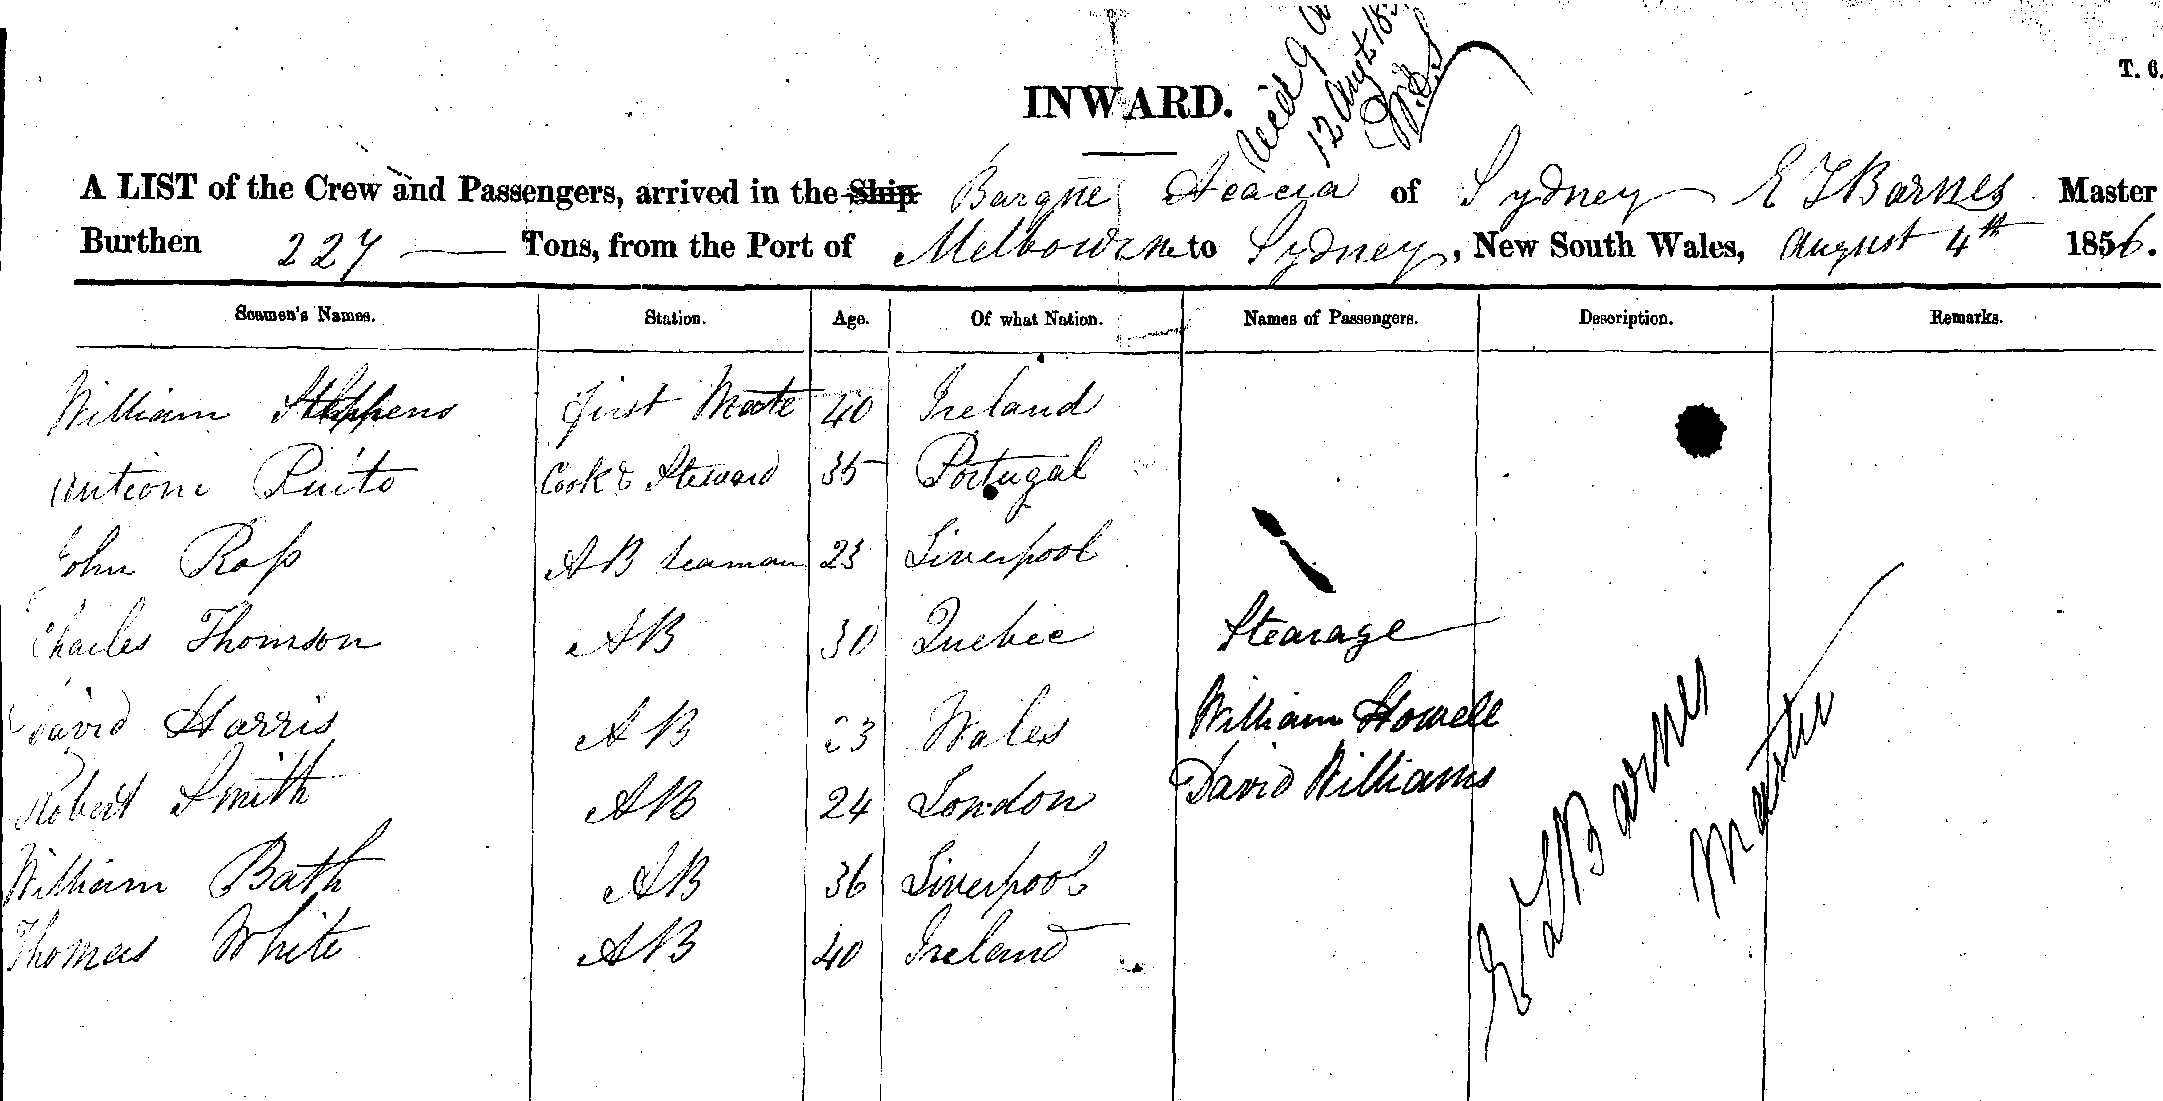 T. 6.
12 Augt 185
INWARD.
A LIST of the Crew and Passengers, arrived in the Ship Barque Acacia of Sydney E L Barnes Master
Burthen 227 Tons, from the Port of Melbourne to Sydney, New South Wales, August 4th 1856.
Seamen's Names. Station. Age. Of what Nation. Names of Passengers. Description. Remarks.
William Stephens First Mate 40 Ireland
Antioni Pinto Cook & Steward 35 Portugal
John Ross AB Seaman 23 Liverpool
Charles Thomson AB 30 Quebec Stearage
David Harris AB 23 Wales William Howell
Robert Smith AB 24 London David Williams
William Bath AB 36 Liverpool
Thomas White AB 40 Ireland
E L Barnes
Master